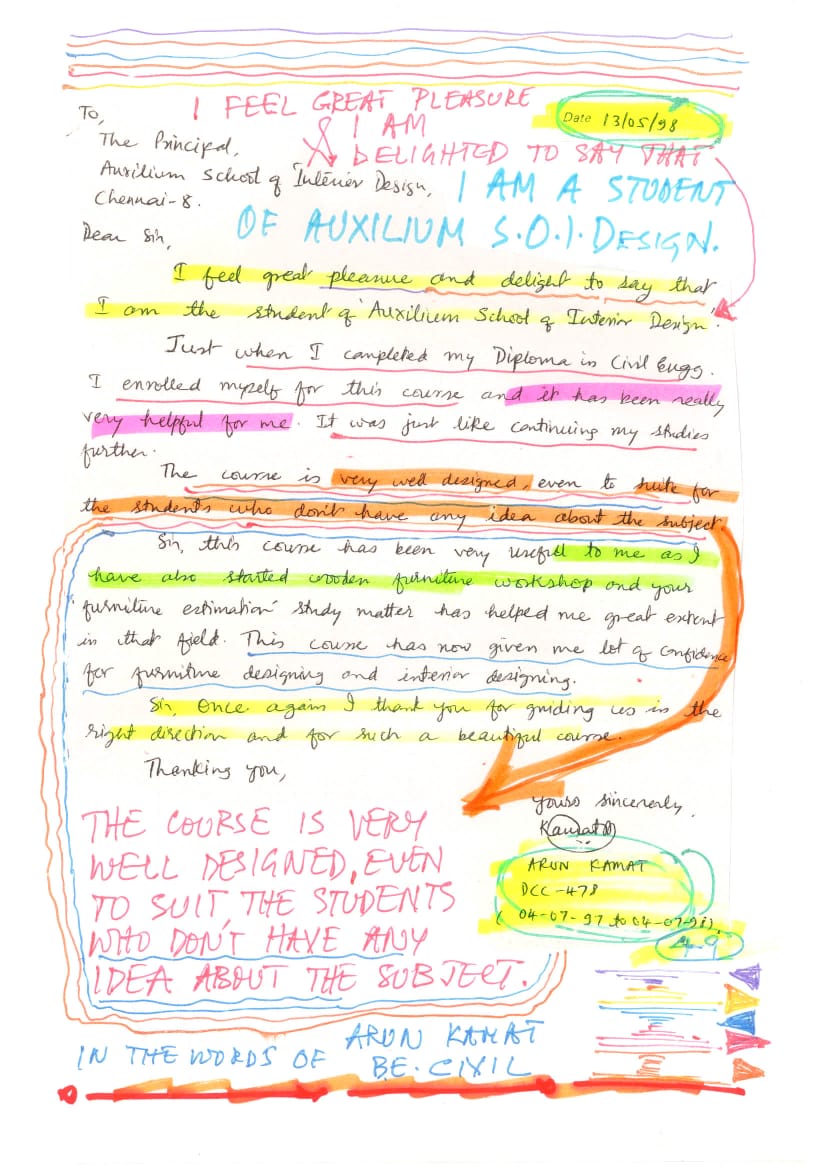 I FEEL GREAT PLEASURE
I AM
DELIGHTED TO SAY THAT
I AM A STUDENT
OF AUXILIUM S.O.I. DESIGN.
Date 13/05/98
To,
The Principal,
Auxilium School of Interior Design,
Chennai-8.
Dear Sir,
I feel great pleasure and delight to say that
I am the student of 'Auxilium School of Interior Design'.
Just when I completed my Diploma in Civil Engg.
I enrolled myself for this course and it has been really
very helpful for me. It was just like continuing my studies
further.
The course is very well designed, even to suite for
the students who don't have any idea about the subject.
Sir, this course has been very useful to me as I
have also started wooden furniture workshop and your
'furniture estimation' study matter has helped me great extent
in that field. This course has now given me lot of confidence
for furniture designing and interior designing.
Sir, Once again I thank you for guiding us in the
right direction and for such a beautiful course.
Thanking you,
Yours sincerenly,
Kamat
ARUN KAMAT
DCC-478
(04-07-97 to 04-07-98)
A-9
THE COURSE IS VERY
WELL DESIGNED, EVEN
TO SUIT THE STUDENTS
WHO DON'T HAVE ANY
IDEA ABOUT THE SUBJECT.
IN THE WORDS OF ARUN KAMAT
BE. CIVIL